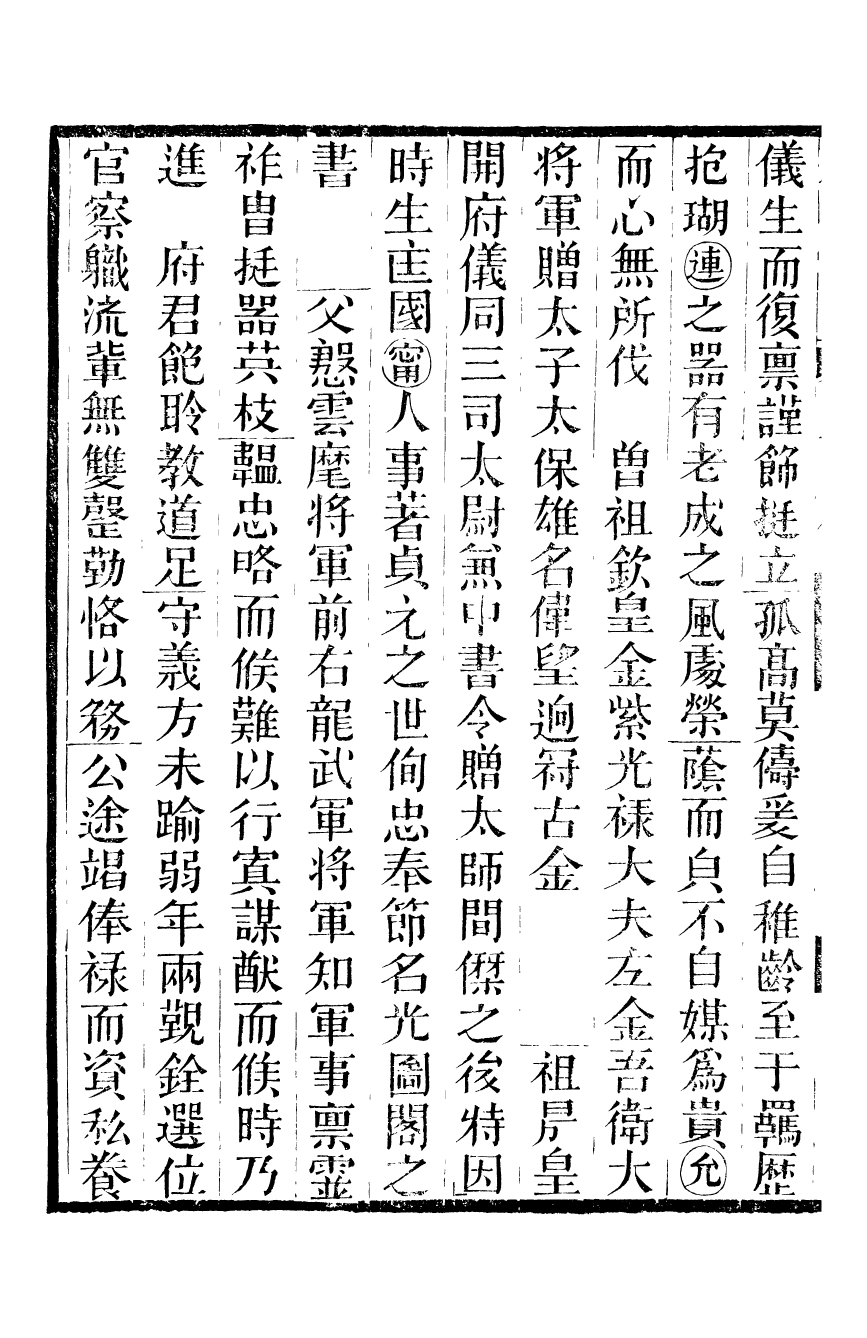 儀生而復禀謹飾挺立孤髙莫儔爰自稚齡至于羈歴
抱瑚連之器有老成之風處榮䕃而負不自媒爲貴允
而心無所伐　曽祖欽皇金紫光禄大夫左金吾衛大
将軍贈太子太保雄名偉望逈冠古金　　　祖昃皇
開府儀同三司太尉兼中書令贈太師間傑之後特因
時生匡國甯人事著貞元之世徇忠奉節名光圖閣之
書　　父慤雲麾将軍前右龍武軍将軍知軍事禀靈
祚曺挺器英枝韞忠略而候難以行寘謀猷而候時乃
進　府君飽聆教道足守義方未踰弱年兩覲銓選位
官察軄流輩無雙罄勤恪以務公途竭俸禄而資私養